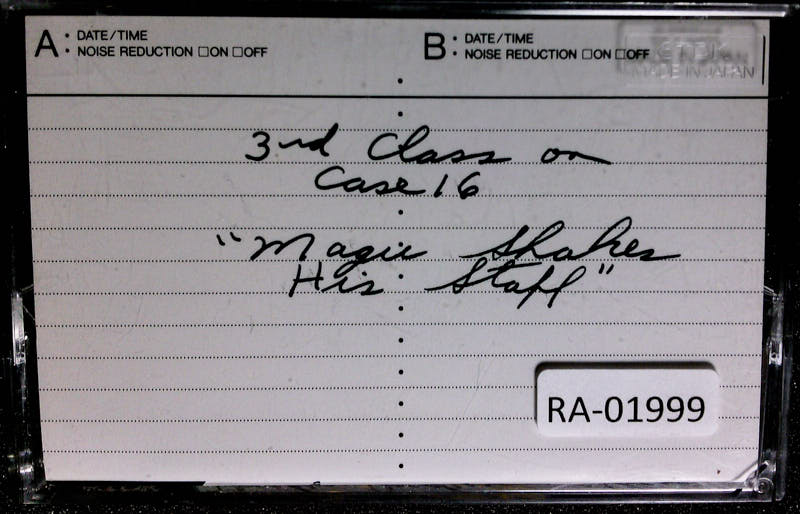 A • DATE/TIME
• NOISE REDUCTION ☐ON ☐OFF
B • DATE/TIME
• NOISE REDUCTION ☐ON ☐OFF
TDK
MADE IN JAPAN
3rd Class on
Case 16
"Magu Shakes
His Staff"
RA-01999